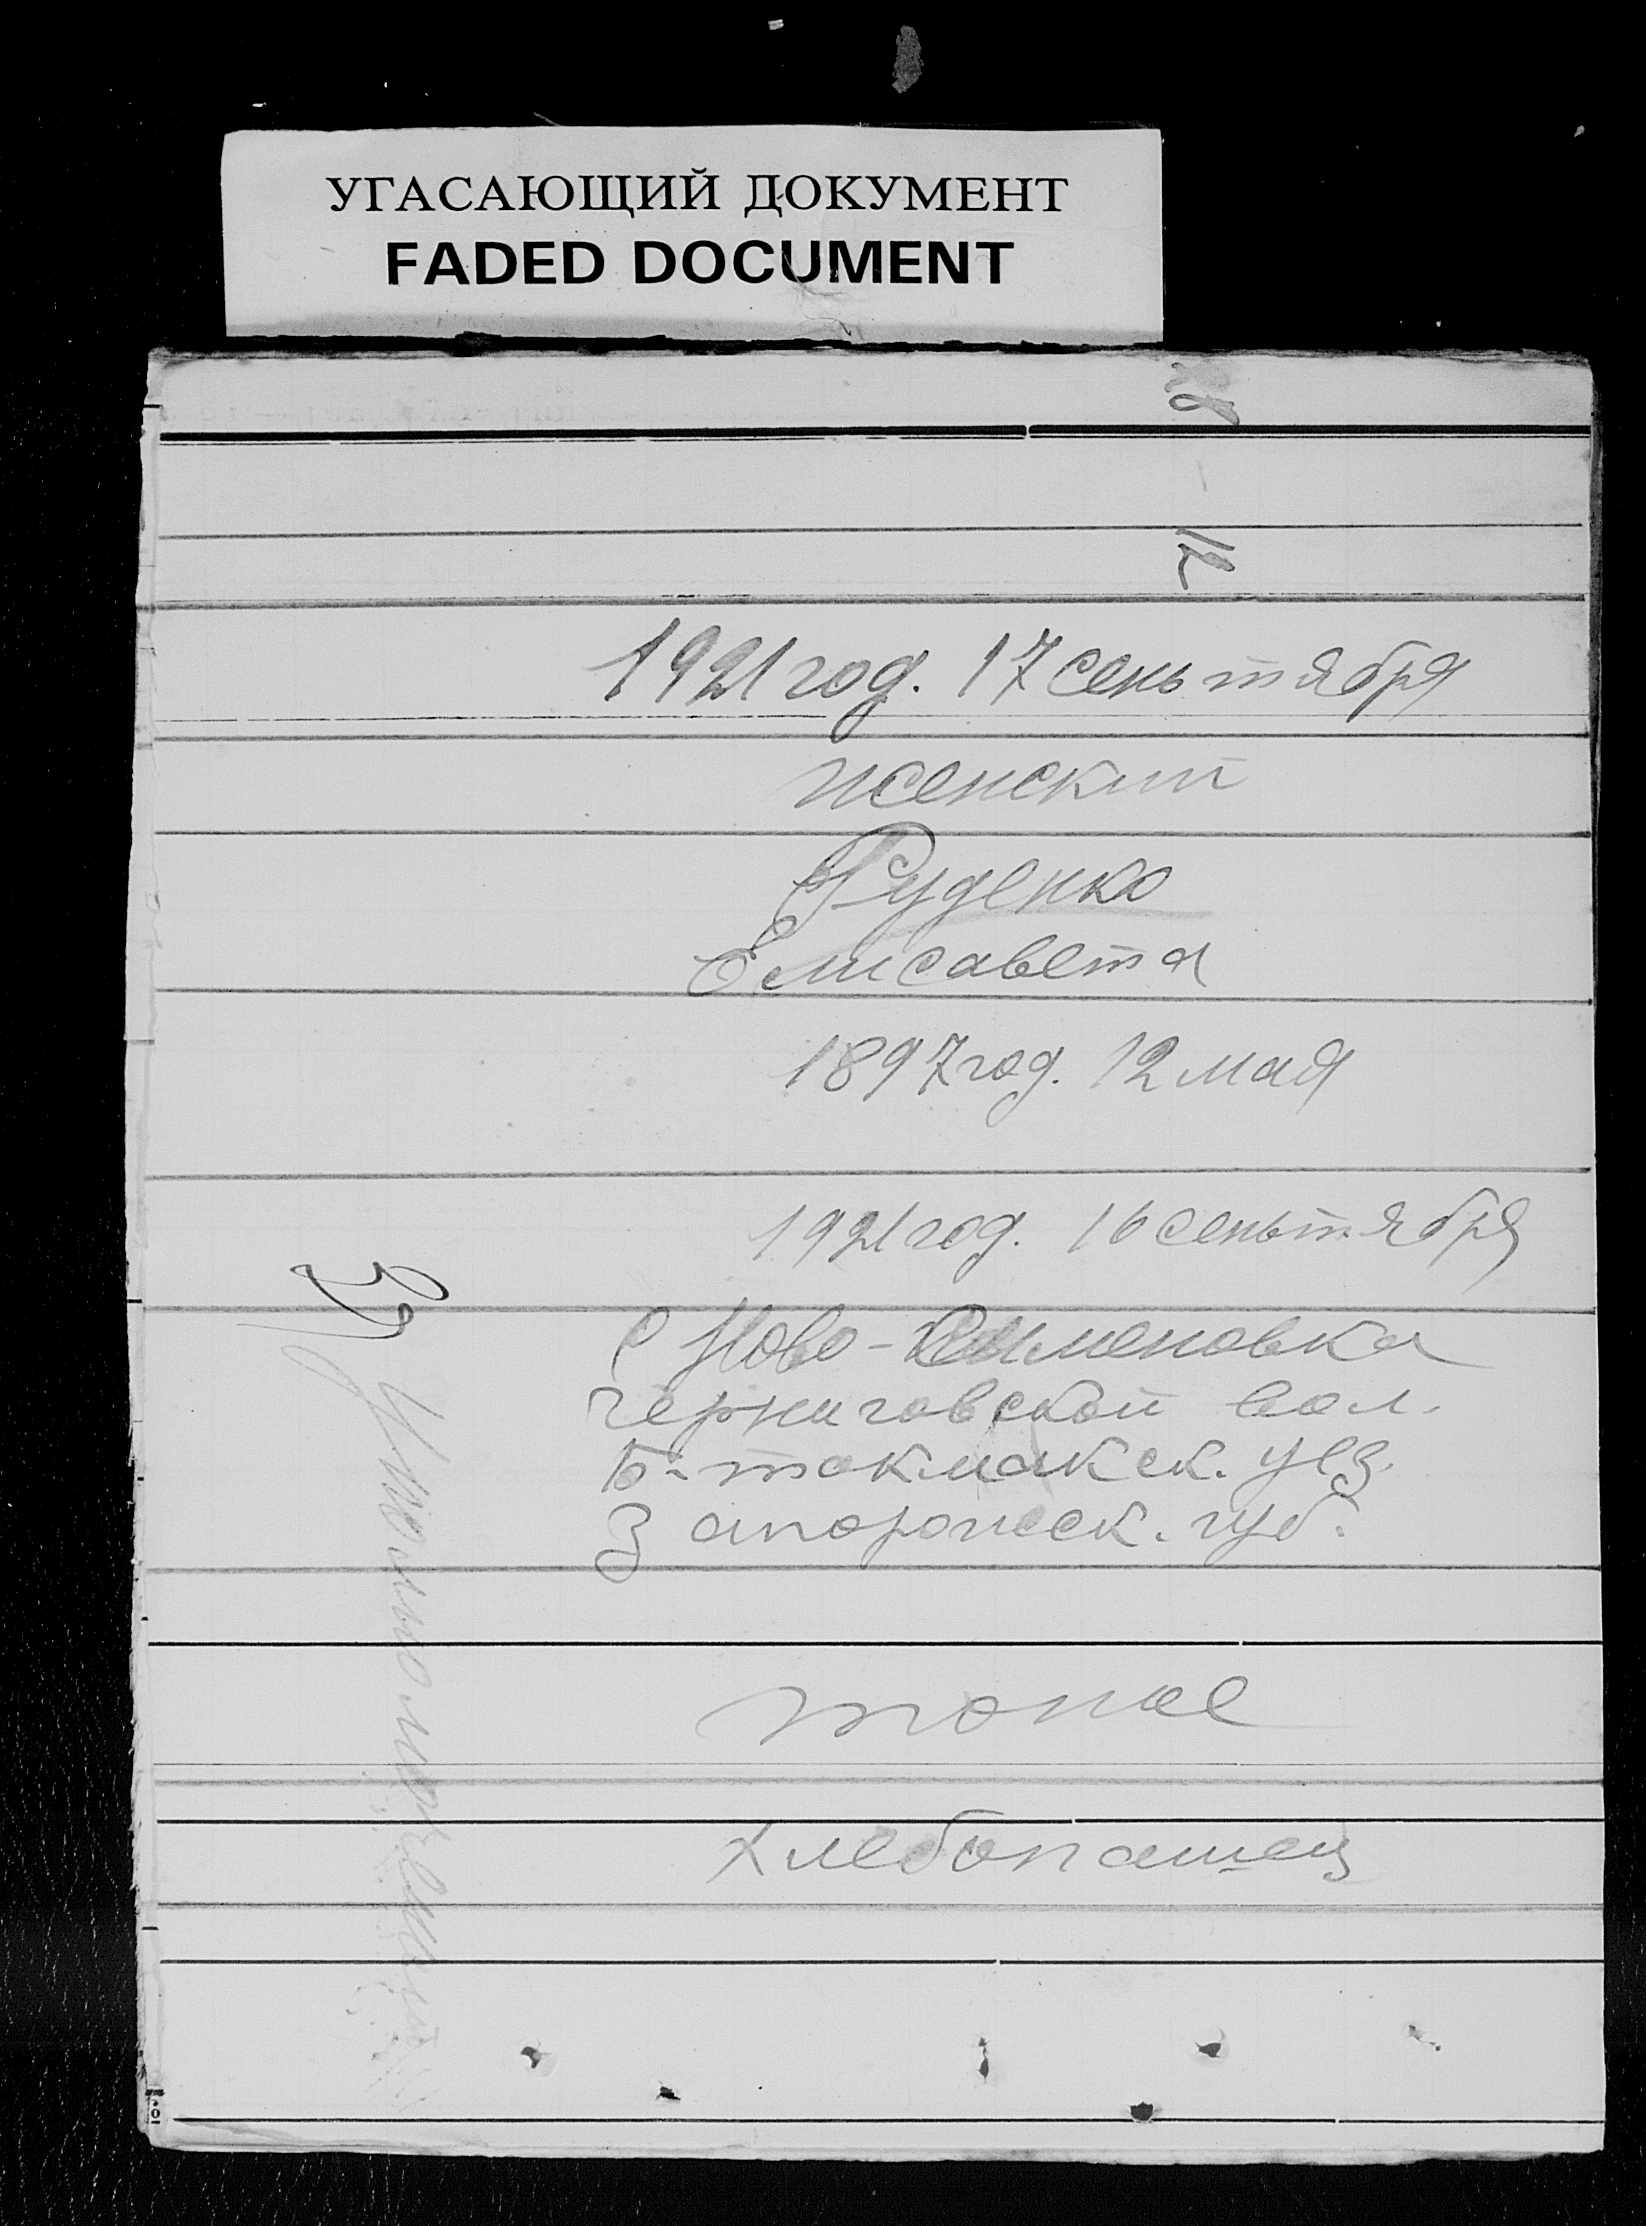 УГАСАЮЩИЙ ДОКУМЕНТ
FADED DOCUMENT
12
1921 год. 17 сеньтября
женский
Руденко
Елисавета
1897 год. 12 мая
1921 год. 16 сеньтября
С Ново-
Черниговской вол.
Б-токмакск. уез.
Запорожск. губ.
тоже
хлебопашец